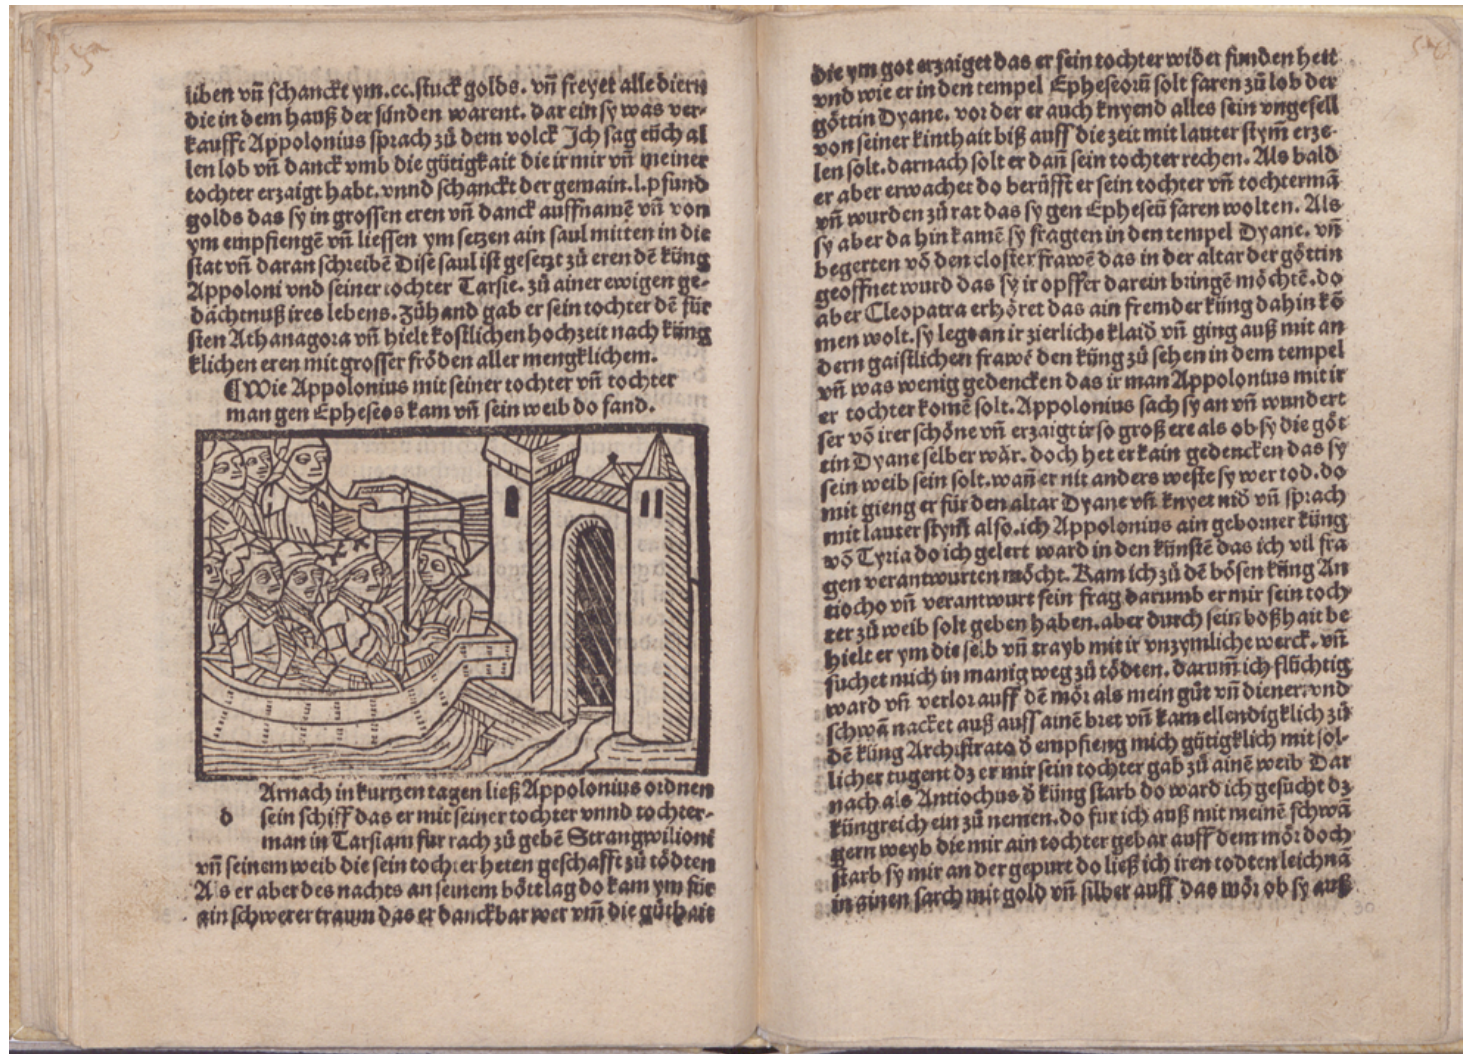 liben vñ schanckt ym.cc.stuck golds. vñ freyet alle diern
die in dem hauß der sünden warent. dar ein sy was ver-
kaufft Appolonius sprach zů dem volck Ich sag eüch al
len lob vñ danck vmb die gütigkait die ir mir vñ meiner
tochter erzaigt habt. vnnd schanckt der gemain.l.pfund
golds das sy in grossen eren vñ danck auffnamẽ vñ von
ym empfiengẽ vñ liessen ym setzen ain saul mitten in die
stat vñ daran schreibẽ Dise saul ist gesetzt zů eren dẽ küng
Appoloni vnd seiner tochter Tarsie. zů ainer ewigen ge-
dächtnuß ires lebens. Zůhand gab er sein tochter dẽ für
sten Athanagora vñ hielt kostlichen hochzeit nach küng
klichen eren mit grosser fröden aller mengklichem.
¶ Wie Appolonius mit seiner tochter vñ tochter
man gen Epheseos kam vñ sein weib do fand.
Arnach in kurtzen tagen ließ Appolonius ordnen
d sein schiff das er mit seiner tochter vnnd tochter-
man in Tarsiam fur rach zů gebẽ Strangwilioni
vñ seinem weib die sein tochter heten geschafft zů tödten
Als er aber des nachts an seinem bött lag do kam ym für
ain schwerer traum das er danckbar wer vm̃ die gůthait
die ym got erzaiget das er sein tochter wider funden hett
vnd wie er in den tempel Epheseorũ solt faren zů lob der
göttin Dyane. vor der er auch knyend alles sein vngesell
von seiner kinthait biß auff die zeit mit lauter stym̃ erze-
len solt. darnach solt er dañ sein tochter rechen. Als bald
er aber erwachet do berüfft er sein tochter vñ tochtermã
vñ wurden zů rat das sy gen Epheseũ faren wolten. Als
sy aber da hin kamẽ sy fragten in den tempel Dyane. vñ
begerten võ den closter frawẽ das in der altar der göttin
geoffnet wurd das sy ir opffer darein bringẽ möchtẽ. do
aber Cleopatra erhöret das ain fremder küng dahin kõ
men wolt. sy legt an ir zierlichs klaid vñ ging auß mit an
dern gaistlichen frawẽ den küng zů sehen in dem tempel
vñ was wenig gedencken das ir man Appolonius mit ir
er tochter komẽ solt. Appolonius sach sy an vñ wundert
ser võ irer schöne vñ erzaigt ir so groß ere als ob sy die göt
tin Dyane selber wär. doch het er kain gedencken das sy
sein weib sein solt. wañ er nit anders weste sy wer tod. do
mit gieng er für den altar Dyane vñ knyet nid vñ sprach
mit lauter stym̃ also. ich Appolonius ain geborner küng
võ Tyria do ich gelert ward in den künstẽ das ich vil fra
gen verantwurten möcht. Kam ich zů dẽ bösen küng An
tiocho vñ verantwurt sein frag darumb er mir sein toch
ter zů weib solt geben haben. aber durch sein boßhait be
hielt er ym die selb vñ trayb mit ir vnzymliche werck. vñ
suchet mich in manig weg zů tödten. darum̃ ich flüchtig
ward vñ verlor auff dẽ mör als mein gůt vñ diener. vnd
schwã nacket auß auff ainẽ bret vñ kam ellendigklich zů
dẽ küng Archistrato d̃ empfieng mich gütigklich mit sol-
licher tugent dz er mir sein tochter gab zů ainẽ weib Dar
nach als Antiochus d̃ küng starb do ward ich gesücht dz
küngreich ein zů nemen. do fur ich auß mit meinẽ schwã
gern weyb die mir ain tochter gebar auff dem mör doch
starb sy mir an der gepurt do ließ ich iren todten leichnã
in ainen sarch mit gold vñ silber auff das mör ob sy auß
30